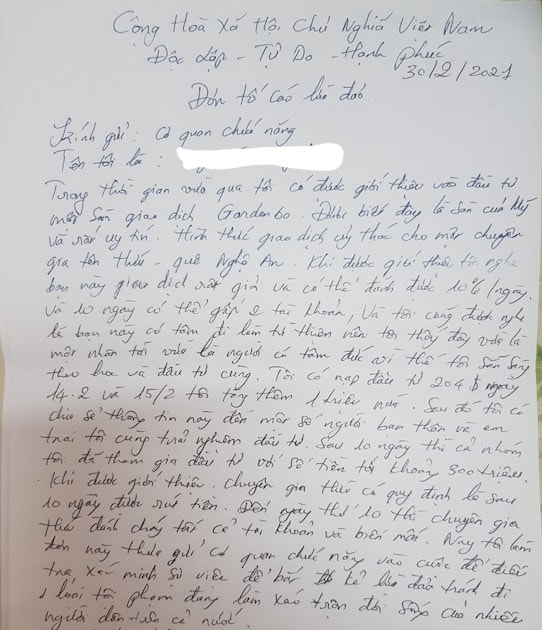 Cộng Hoà Xã Hội Chủ Nghĩa Việt Nam
Độc Lập - Tự Do - Hạnh phúc
30/2/2021
Đơn tố cáo lừa đảo.
Kính gửi: Cơ quan chức năng
Tên tôi là:
Trong thời gian vừa qua tôi có được giới thiệu vào đầu tư
một sàn giao dịch Gardenbo. Được biết đây là sàn của Mỹ
và rất uy tín. Hình thức giao dịch uỷ thác cho một chuyên
gia tên Thức - quê Nghệ An. Khi được giới thiệu tôi nghe
bạn này giao dịch rất giỏi và có thể đánh được 10%/ngày.
và 10 ngày có thể gấp 2 tài khoản, Và tôi cũng được nghe
là bạn này có tâm đi làm từ thiện nên tôi thấy đây vừa là
một nhân tài vừa là người có tâm đức vì thế tôi sẵn sàng
theo học và đầu tư cùng. Tôi có nạp đầu tư 204 $ ngày
14.2 và 15/2 tôi tăng thêm 1 triệu nữa. Sau đó tôi có
chia sẻ thông tin này đến một số người bạn thân và em
trai tôi cùng trải nghiệm đầu tư. Sau 10 ngày thì cả nhóm
tôi đã tham gia đầu tư với số tiền tới khoảng 300 triệu.
Khi được giới thiệu, chuyên gia Thức có quy định là sau
10 ngày được rút tiền. Đến ngày thứ 10 thì chuyên gia
Thức đánh cháy tất cả tài khoản và biến mất. Nay tôi làm
đơn này thưa gửi cơ quan chức năng vào cuộc để điều
tra xác minh sự việc để bắt kẻ lừa đảo tránh đi
1 loại tội phạm đang làm xáo trộn đời sống của nhiều
người dân trên cả nước.